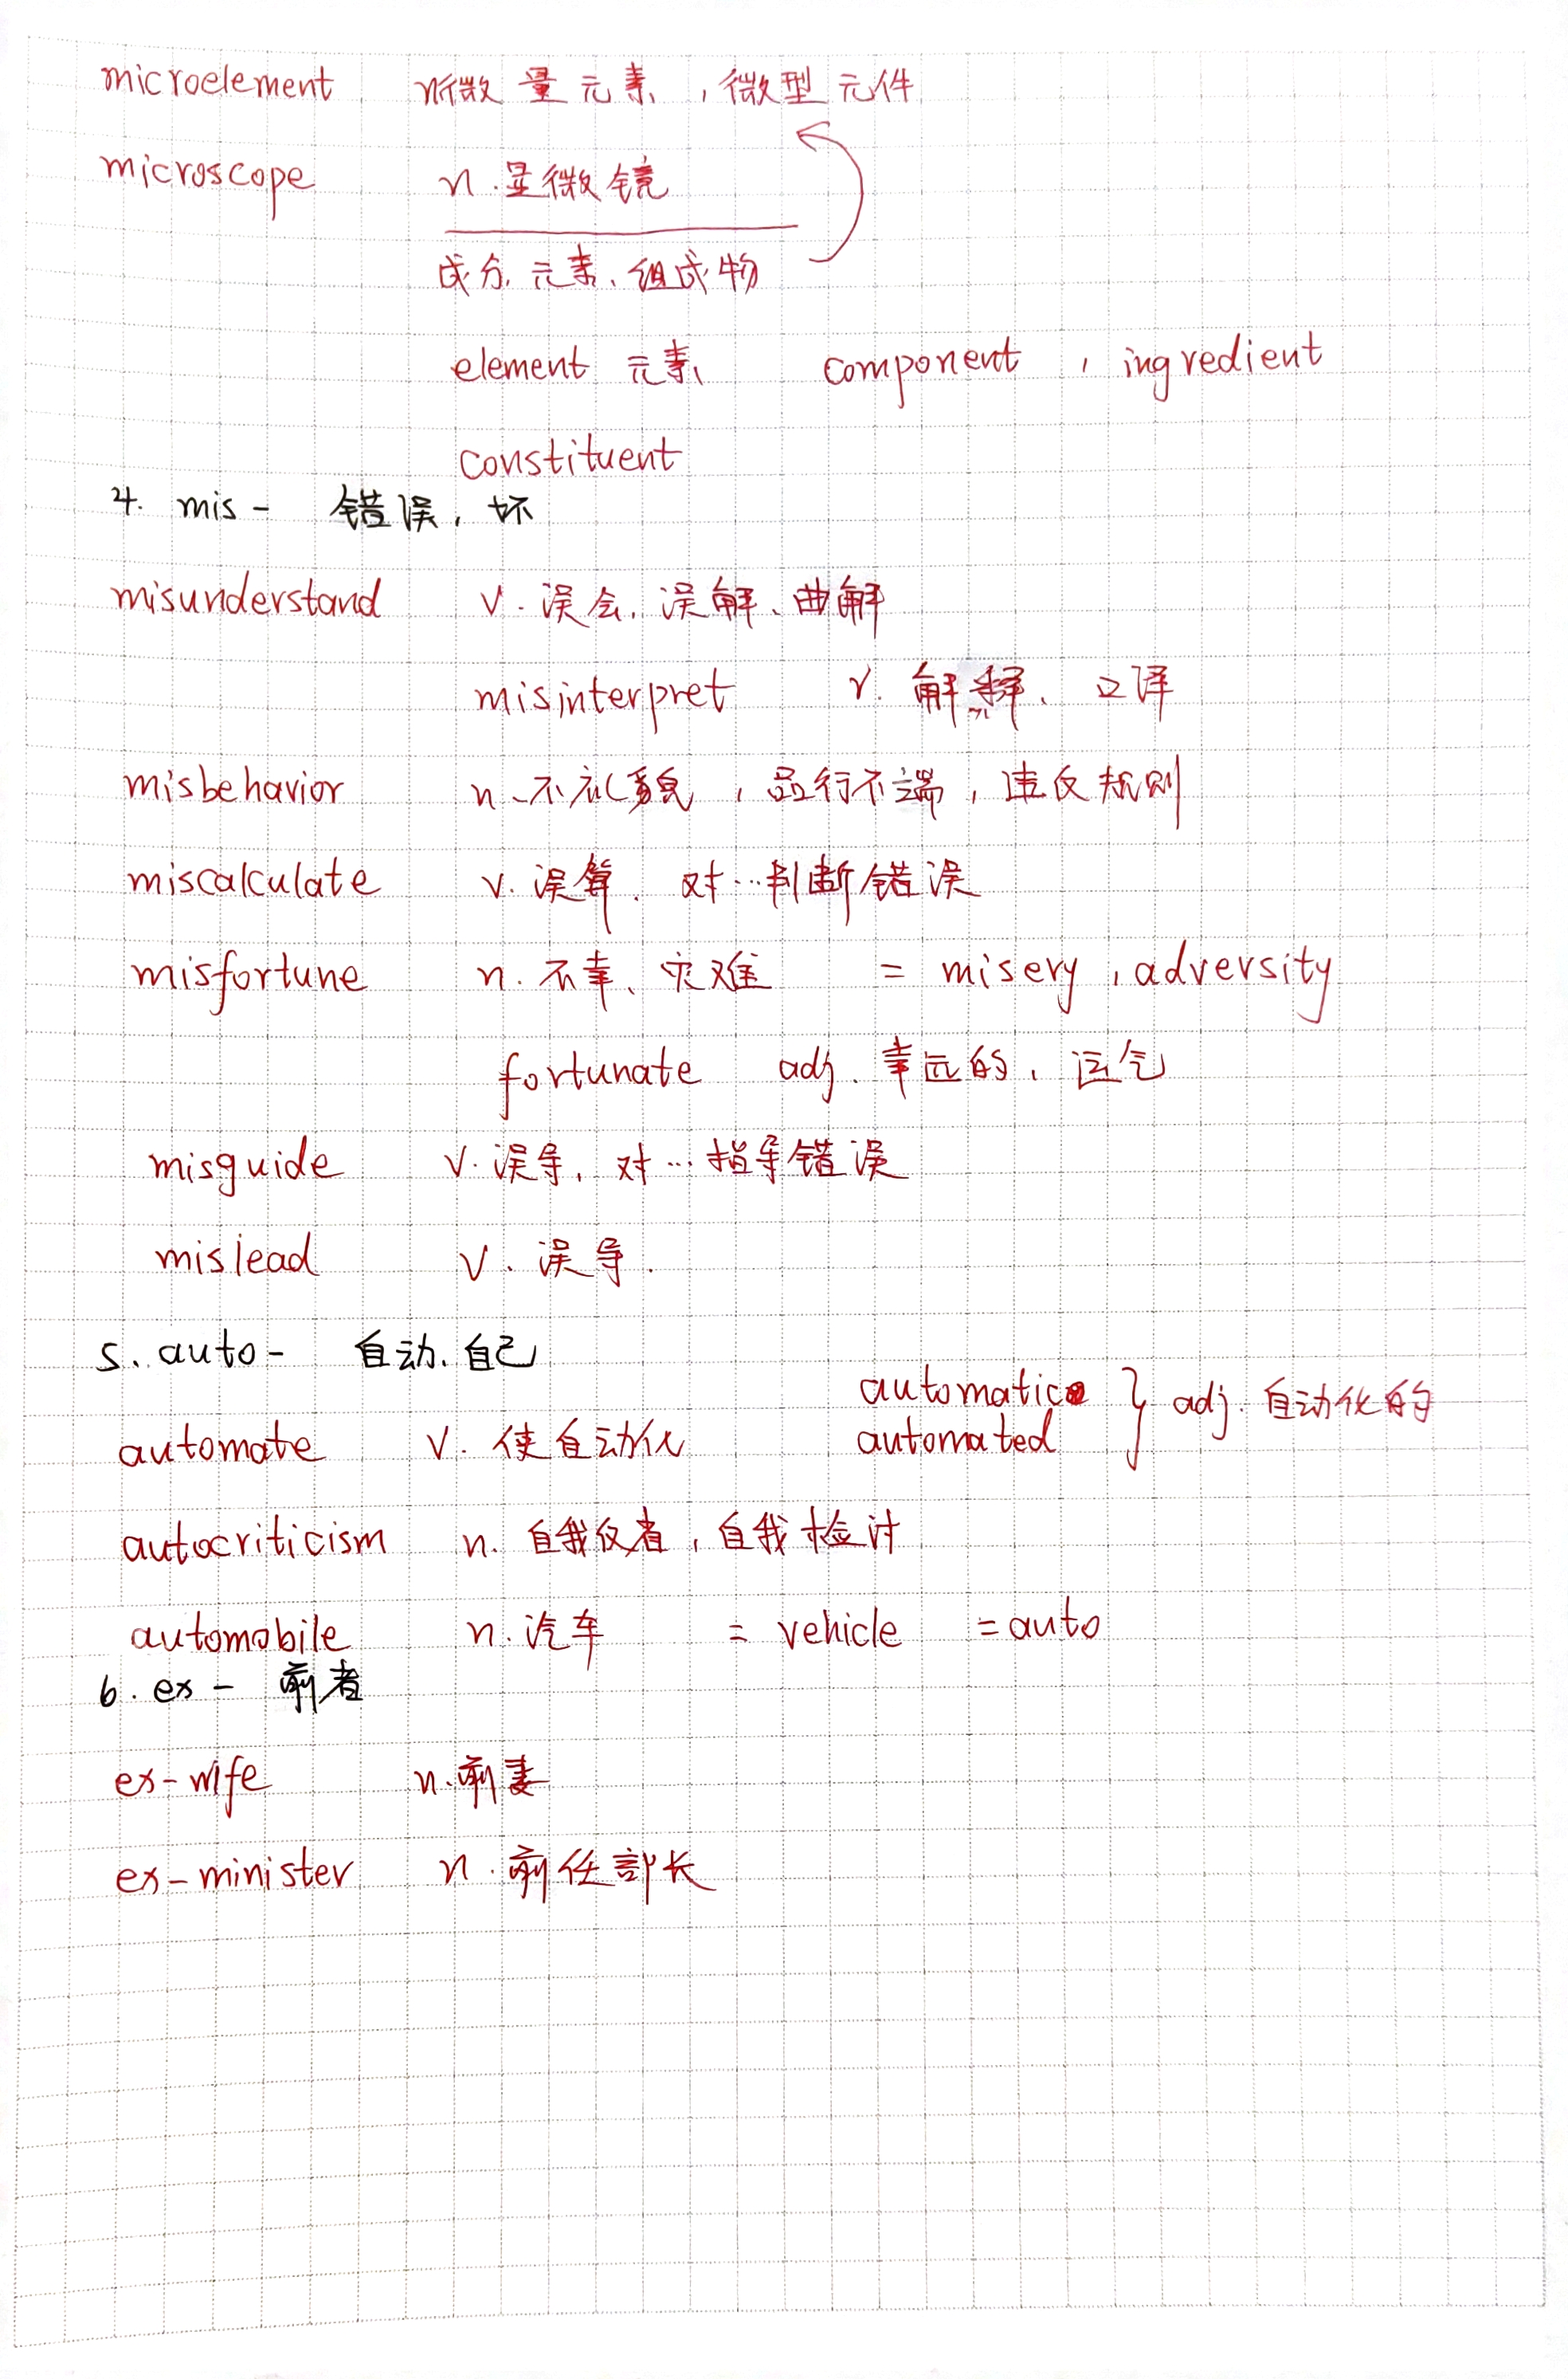 microelement n微量元素，微型元件
microscope n.显微镜
成分、元素、组成物
element 元素 component , ingredient
constituent
4. mis- 错误，坏
misunderstand v.误会、误解、曲解
misinterpret v.解释、口译
misbehavior n、不礼貌，品行不端，违反规则
miscalculate v.误算、对…判断错误
misfortune n.不幸、灾难 = misery , adversity
fortunate adj.幸运的、运气
misguide v.误导、对…指导错误
mislead v.误导.
5. auto- 自动、自己
automatic
automate v.使自动化 automated } adj.自动化的
autocriticism n.自我反省，自我检讨
automobile n.汽车 = vehicle = auto
6. ex- 前者
ex-wife n.前妻
ex-minister n.前任部长